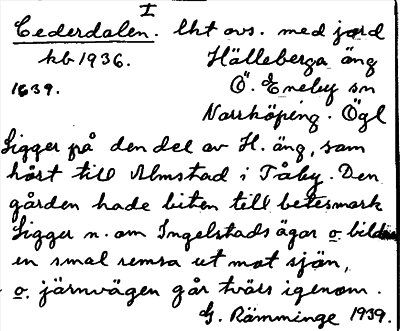 I
Cederdalen. lht avs. med jord
kb 1936. Hälleberga äng
1639. Ö. Eneby sn
Norrköping. Ögl
Ligger på den del av H. äng, som
hört till Almstad i Tåby. Den
gården hade biten till betesmark
Ligger n. om Ingelstads ägor o bildar
en smal remsa ut mot sjön,
o. järnvägen går tvärs igenom.
G. Rämminge 1939.